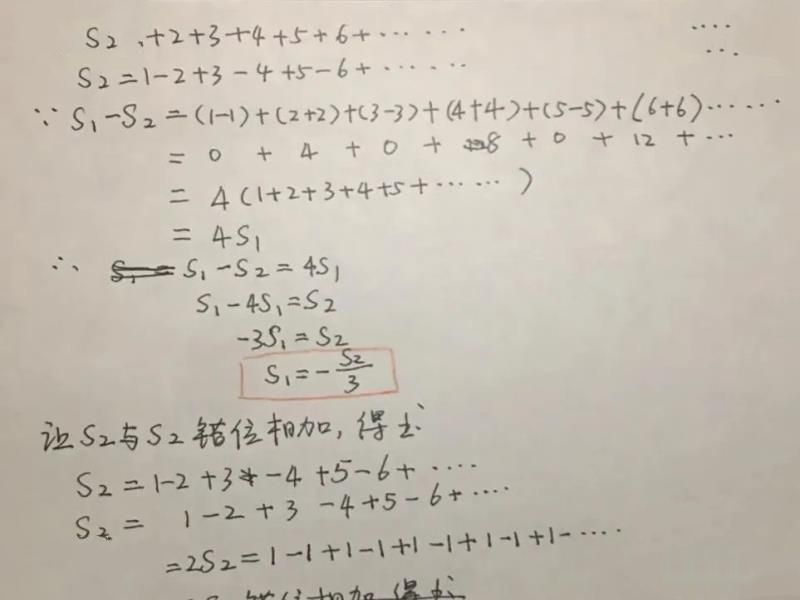 S2 ,+2+3+4+5+6+⋯⋯
S2=1-2+3-4+5-6+⋯⋯
∵ S1-S2=(1-1)+(2+2)+(3-3)+(4+4)+(5-5)+(6+6)⋯⋯
= 0 + 4 + 0 + 8 + 0 + 12 + ⋯
= 4(1+2+3+4+5+⋯⋯)
= 4S1
∴ S1-S2=4S1
S1-4S1=S2
-3S1=S2
S1=-S2/3
让S2与S2错位相加,得出
S2=1-2+3-4+5-6+⋯⋯
S2= 1-2+3-4+5-6+⋯⋯
=2S2=1-1+1-1+1-1+1-1+1-⋯⋯
错位相加得出